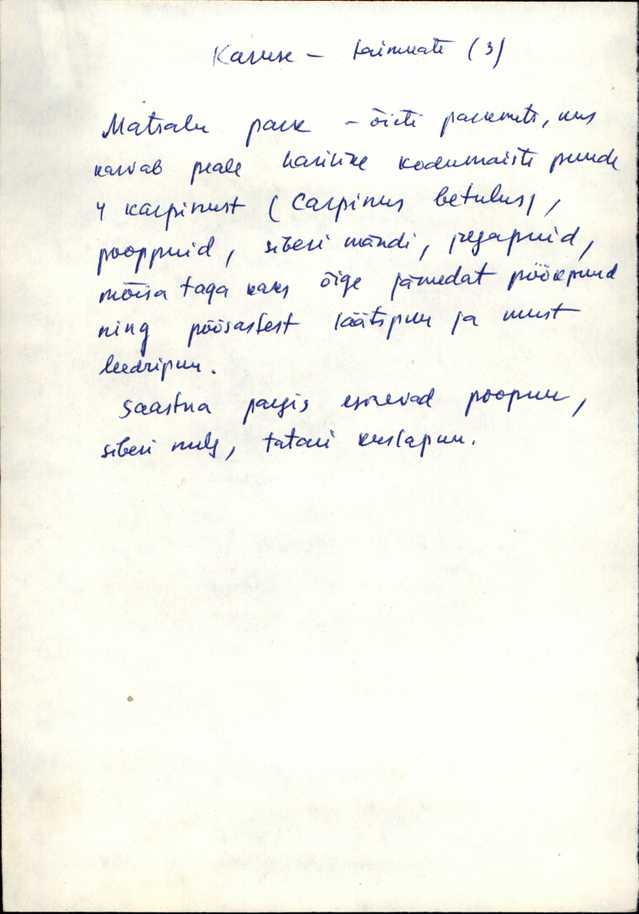 Karuse – taimestik (3)
Matsalu park – õieti parkmets, kus
kasvab peale harilike kodumaiste puude
4 karpinust (Carpinus betulus),
pooppuid, siberi mändi, jegapuid,
mõisa taga kaks õige jämedat pöökpuud
ning põõsastest läätspuu ja must
leedripuu.
Saastna pargis esinevad poopuu,
siberi nulg, tatari kuslapuu.